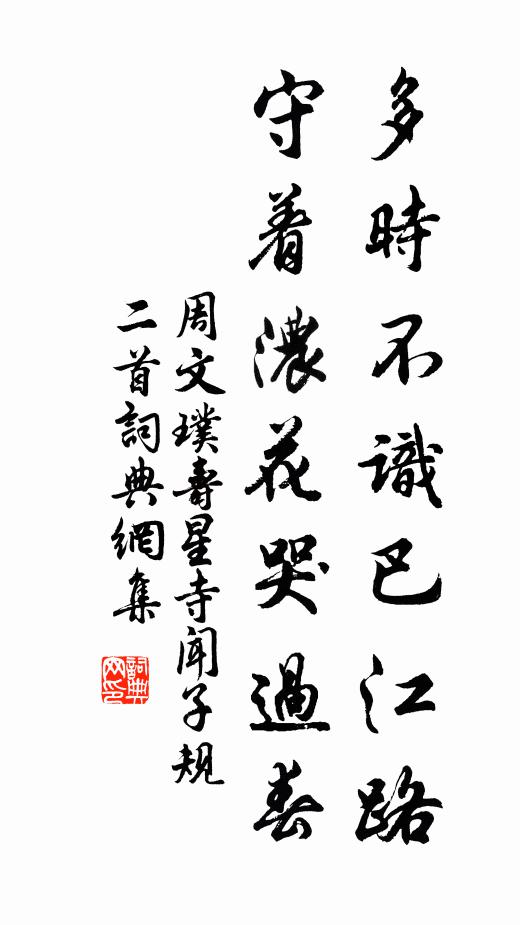 多時不識巴江路
守着濃花哭過春
周文璞壽星寺聞子規
二首詞典網集
詞典網印